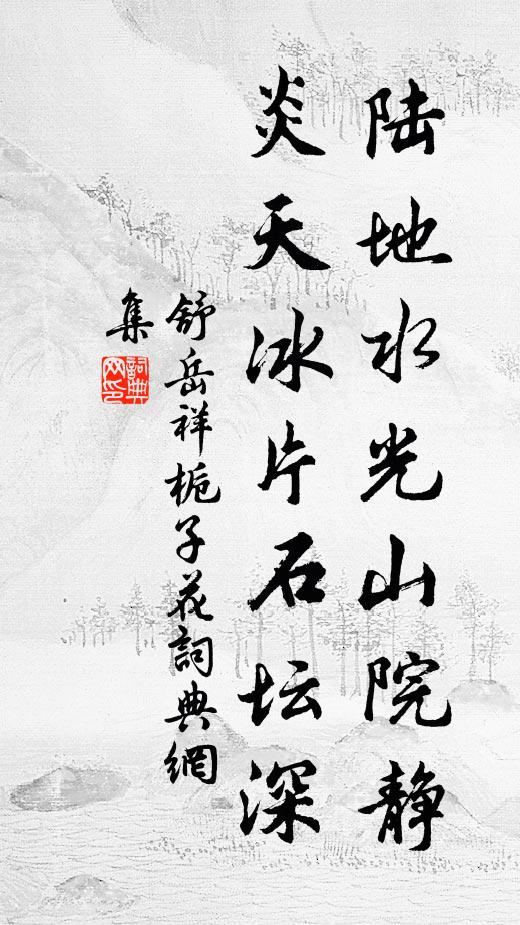 陆地水光山院静
炎天冰片石坛深
舒岳祥栀子花詞典網
集
詞典
网印